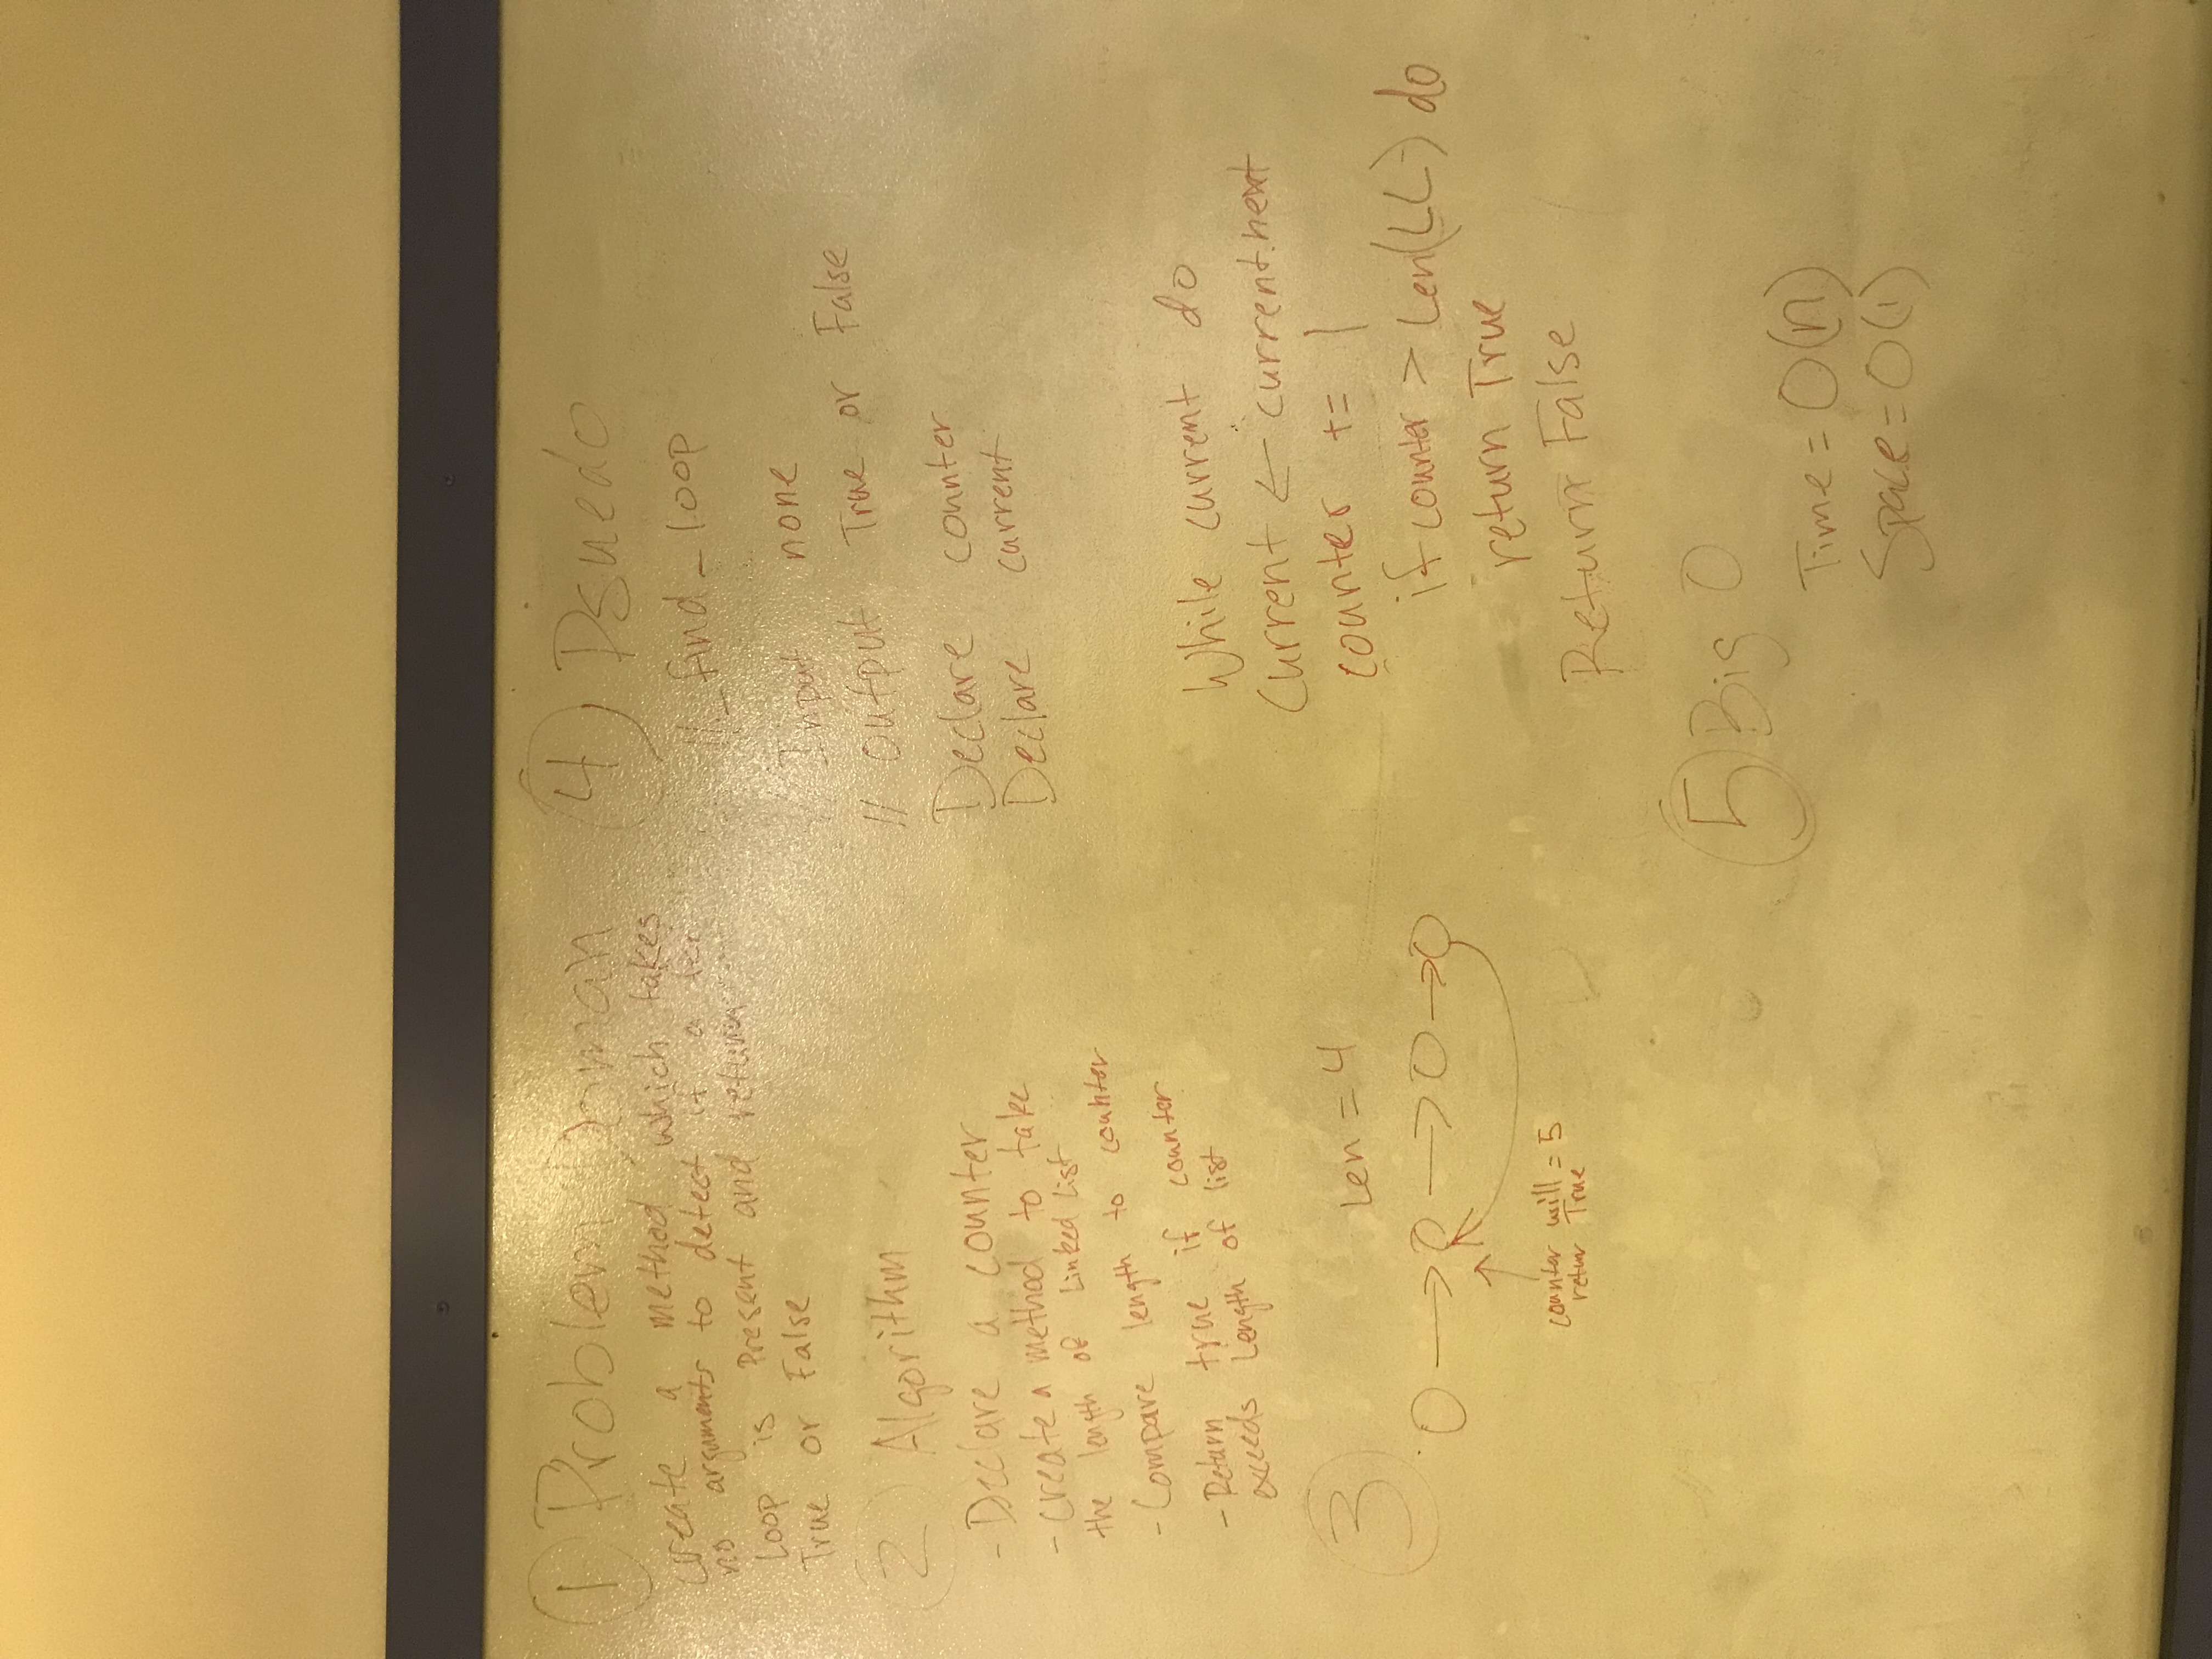 1 Problem Doman
create a method which takes
no arguments to detect if a
Loop is Present and return
True or False
2 Algorithm
- Declare a counter
- create a method to take
the length of Linked List
- Compare length to counter
- Return true if counter
exceeds Length of list
3
Len = 4
0 → 0 → 0 → 0
counter will = 5
retur True
4 Psuedo
// _find_loop
// Input none
// Output True or False
Declare counter
Declare current
While current do
Current ← current.next
counter += 1
if counter > Len(LL) do
return True
Return False
5 Big O
Time = O(n)
Space = O(1)